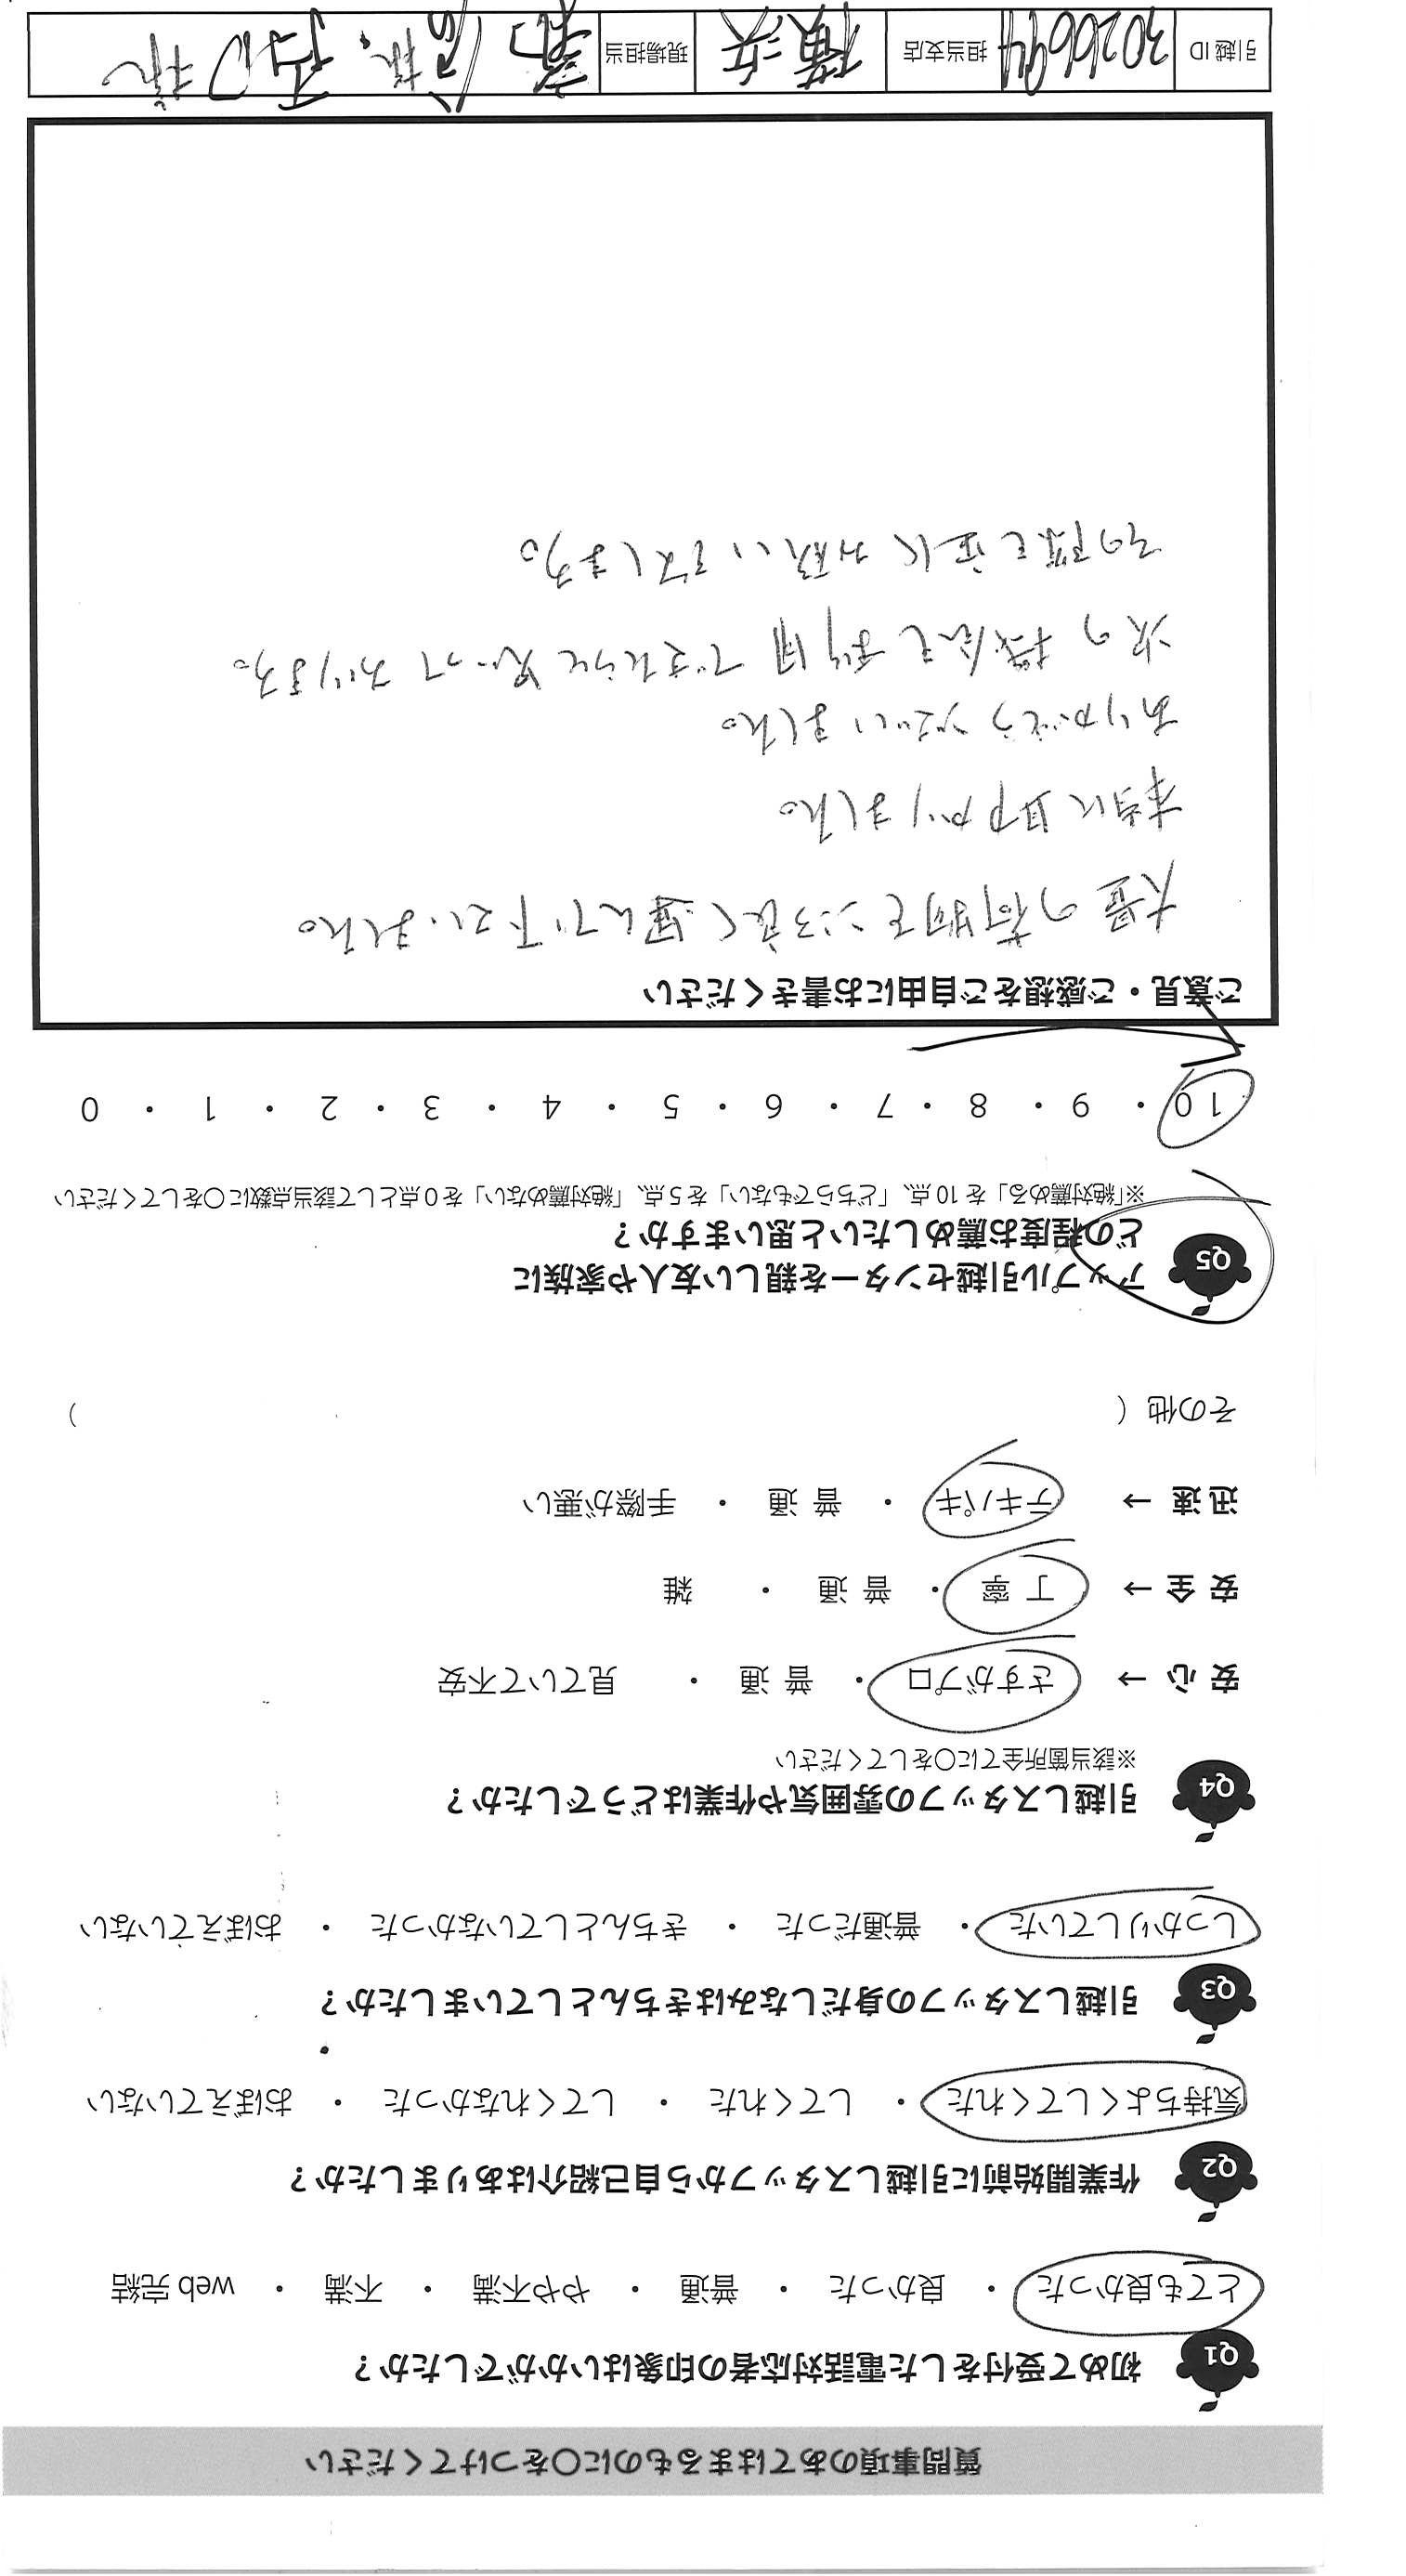 質問事項のあてはまるものに〇をつけてください
Q1 初めて受付をした電話対応者の印象はいかがでしたか？
とても良かった ・ 良かった ・ 普通 ・ やや不満 ・ 不満 ・ web 完結
Q2 作業開始前に引越しスタッフから自己紹介はありましたか？
気持ちよくしてくれた ・ してくれた ・ してくれなかった ・ おぼえていない
Q3 引越しスタッフの身だしなみはきちんとしていましたか？
しっかりしていた ・ 普通だった ・ きちんとしていなかった ・ おぼえていない
Q4 引越しスタッフの雰囲気や作業はどうでしたか？
※該当箇所全てに〇をしてください
安心 → さすがプロ ・ 普通 ・ 見ていて不安
安全 → 丁寧 ・ 普通 ・ 雑
迅速 → テキパキ ・ 普通 ・ 手際が悪い
その他（ ）
Q5 アップル引越センターを親しい友人や家族に
どの程度お薦めしたいと思いますか？
※「絶対薦める」を 10 点、「どちらでもない」を 5 点、「絶対薦めない」を 0 点として該当点数に〇をしてください
10 ・ 9 ・ 8 ・ 7 ・ 6 ・ 5 ・ 4 ・ 3 ・ 2 ・ 1 ・ 0
ご意見・ご感想をご自由にお書きください
大量の荷物をこころ良く運んで下さいました。
本当に助かりました。
ありがとうございました。
次の機会も利用できたらと思っております。
その際も宜しくお願い致します。
引越 ID 3026694 担当支店 横浜 現場担当 様、 様